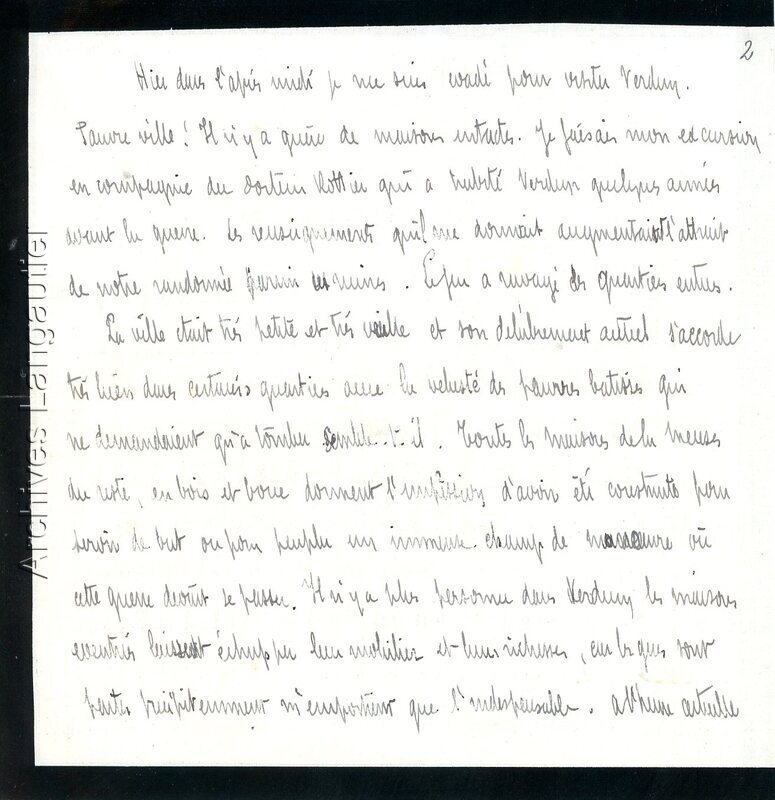 2
Hier dans l'après midi je me suis evadé pour visiter Verdun.
Pauvre ville! Il n'y a guère de maisons intactes. Je faisais mon excursion
en compagnie du docteur qui a habité Verdun quelques années
avant la guerre. Les renseignements qu'il me donnait augmentaient l'attrait
de notre randonnée parmi les ruines. Le feu a ravagé des quartiers entiers.
La ville était très petite et très vieille et son délabrement actuel s'accorde
très bien dans certains quartiers avec la vetusté des pauvres batisses qui
ne demandaient qu'a tomber semble-t-il. Toutes les maisons de la Meuse
du reste, en bois et boue donnent l'impression d'avoir été construites pour
servir de but ou pour peupler un immense champ de manoeuvre où
cette guerre devait se passer. Il n'y a plus personne dans Verdun les maisons
eventrées laissent échapper leur mobilier et leurs richesses, car les gens sont
partis précipitemment n'emportant que l'indispensable. a l'heure actuelle
Archives Langautier